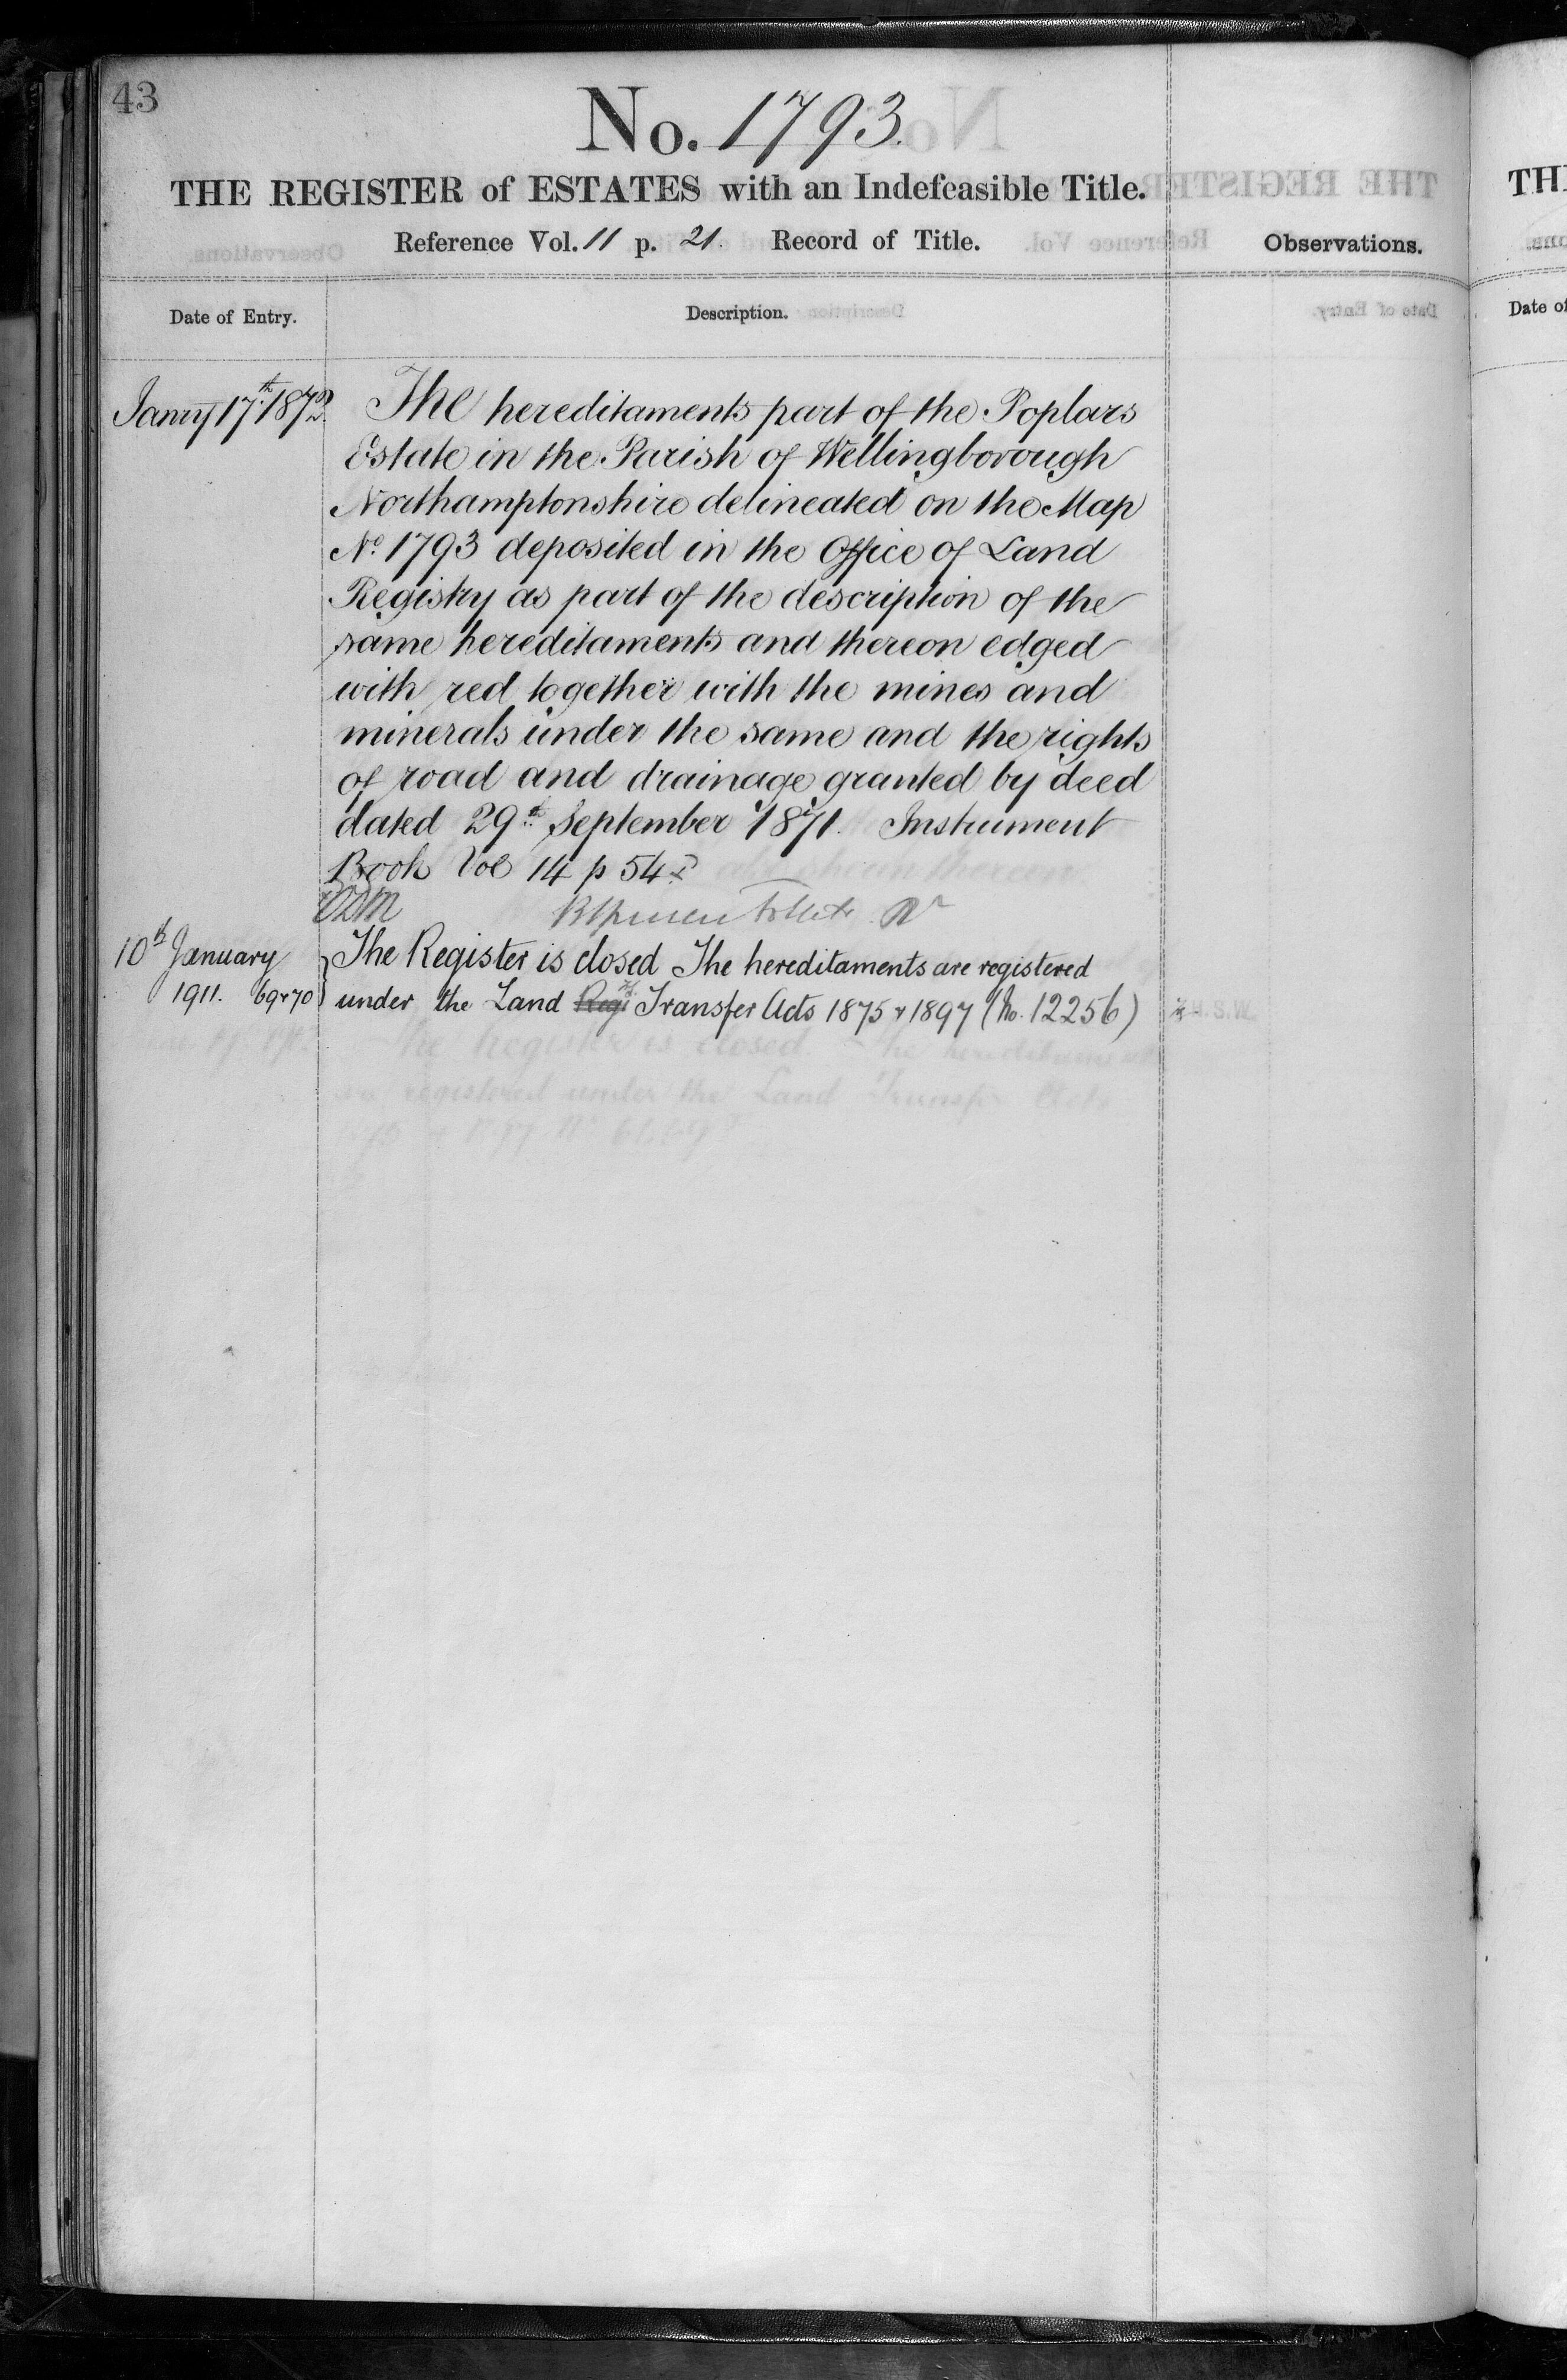 43
No. 1793.
THE REGISTER of ESTATES with an Indefeasible Title.
Reference Vol. 11 p. 21. Record of Title.
Observations.
Date of Entry.
Description.
Janry 17th 1872.
The hereditaments part of the Poplars
Estate in the Parish of Wellingborough
Northamptonshire delineated on the Map
No. 1793 deposited in the Office of Land
Registry as part of the description of the
same hereditaments and thereon edged
with red together with the mines and
minerals under the same and the rights
of road and drainage granted by deed
dated 29th September 1871. Instrument
Book Vol 14 p 54
10th January
1911. 69 & 70
The Register is closed The hereditaments are registered
under the Land Regy Transfer Acts 1875 & 1897 (No. 12256)
H.S.W.
TH
Date of